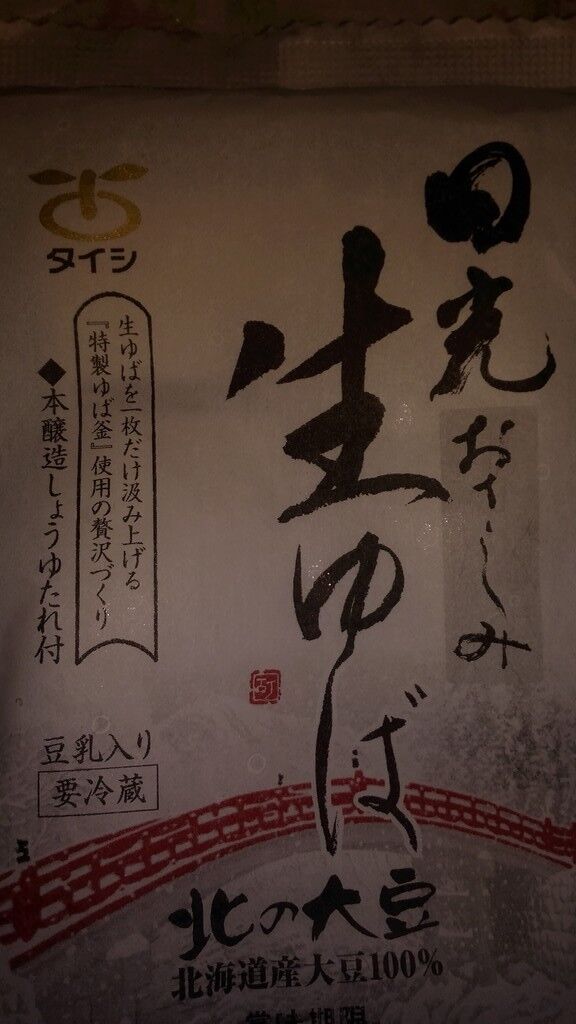 日光
おさしみ
生ゆば
タイシ
生ゆばを一枚だけ汲み上げる
『特製ゆば釜』使用の贅沢づくり
◆本醸造しょうゆたれ付
豆乳入り
要冷蔵
北の大豆
北海道産大豆100%
賞味期限